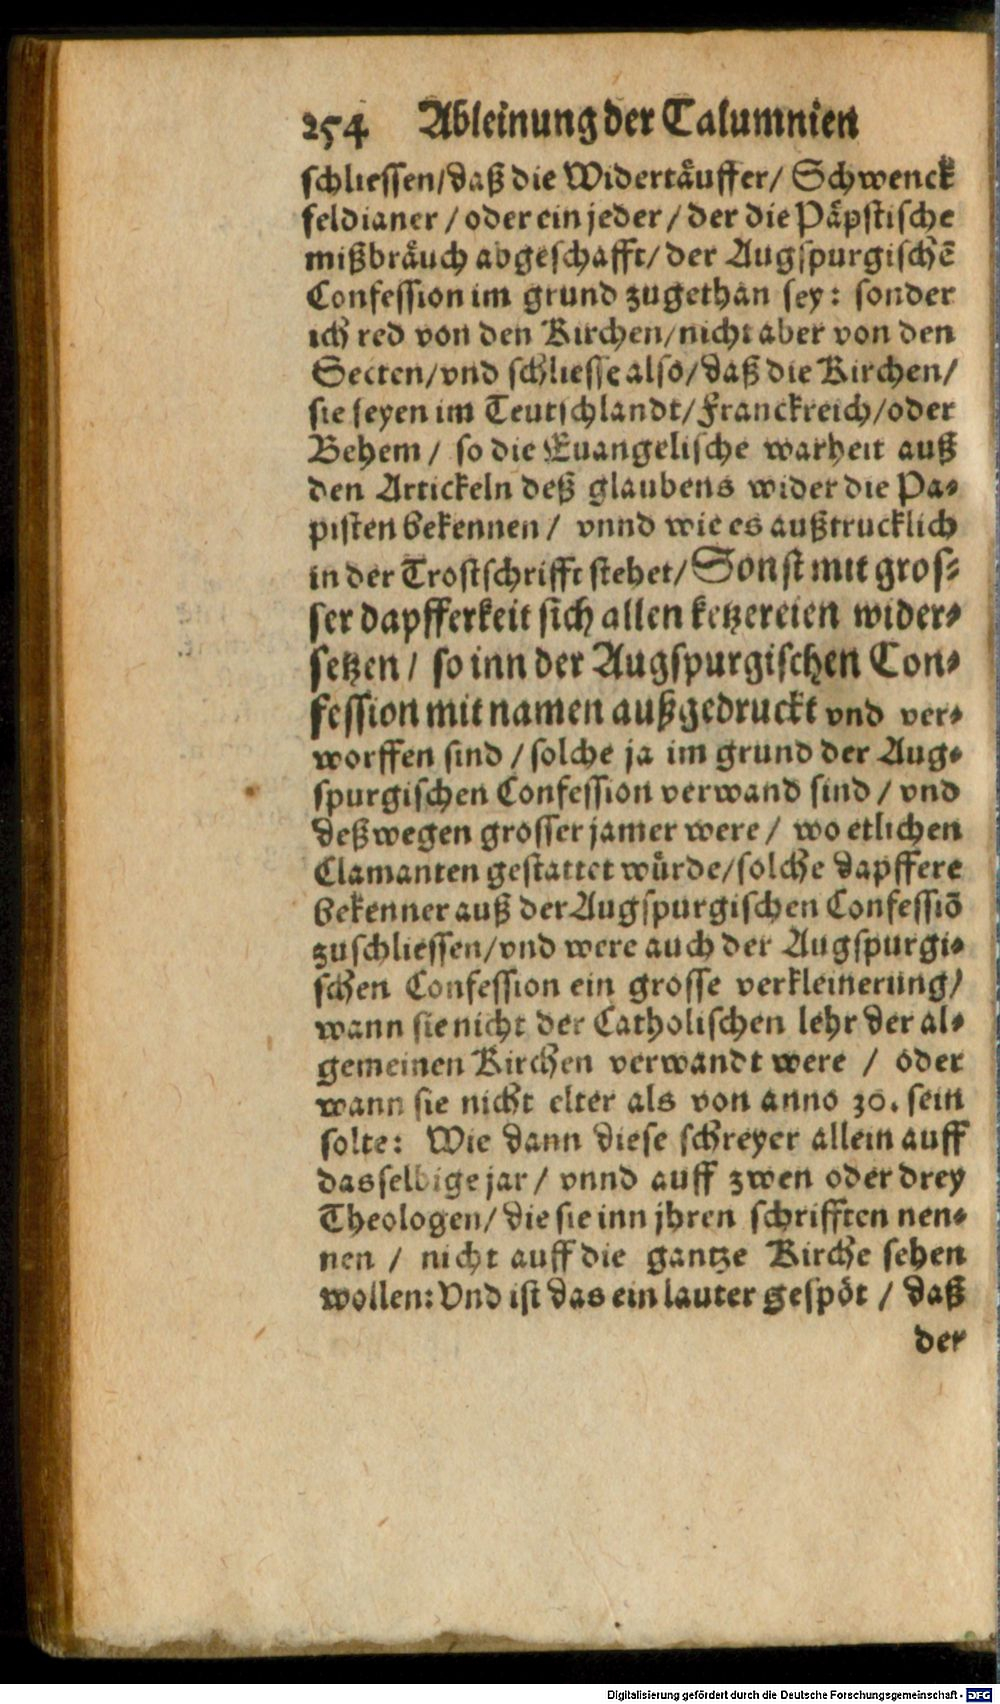 254 Ableinung der Calumnien
schliessen/daß die Widertäuffer/ Schwenck
feldianer / oder ein jeder / der die Päpstische
mißbräuch abgeschafft/ der Augspurgischē
Confession im grund zugethan sey: sonder
ich red von den Kirchen/nicht aber von den
Secten/vnd schliesse also/daß die Kirchen/
sie seyen im Teutschlandt/Franckreich/oder
Behem / so die Euangelische warheit auß
den Artickeln deß glaubens wider die Pa-
pisten bekennen / vnnd wie es außtrucklich
in der Trostschrifft stehet/ Sonst mit gros-
ser dapfferkeit sich allen ketzereien wider-
setzen / so inn der Augspurgischen Con-
fession mit namen außgedruckt vnd ver-
worffen sind / solche ja im grund der Aug-
spurgischen Confession verwand sind / vnd
deßwegen grosser jamer were / wo etlichen
Clamanten gestattet würde/solche dapffere
bekenner auß der Augspurgischen Confessiō
zuschliessen/vnd were auch der Augspurgi-
schen Confession ein grosse verkleinerung/
wann sie nicht der Catholischen lehr der al-
gemeinen Kirchen verwandt were / oder
wann sie nicht elter als von anno 30. sein
solte: Wie dann diese schreyer allein auff
dasselbige jar / vnnd auff zwen oder drey
Theologen/ die sie inn jhren schrifften nen-
nen / nicht auff die gantze Kirche sehen
wollen: Vnd ist das ein lauter gespöt / daß
der
Digitalisierung gefördert durch die Deutsche Forschungsgemeinschaft - DFG